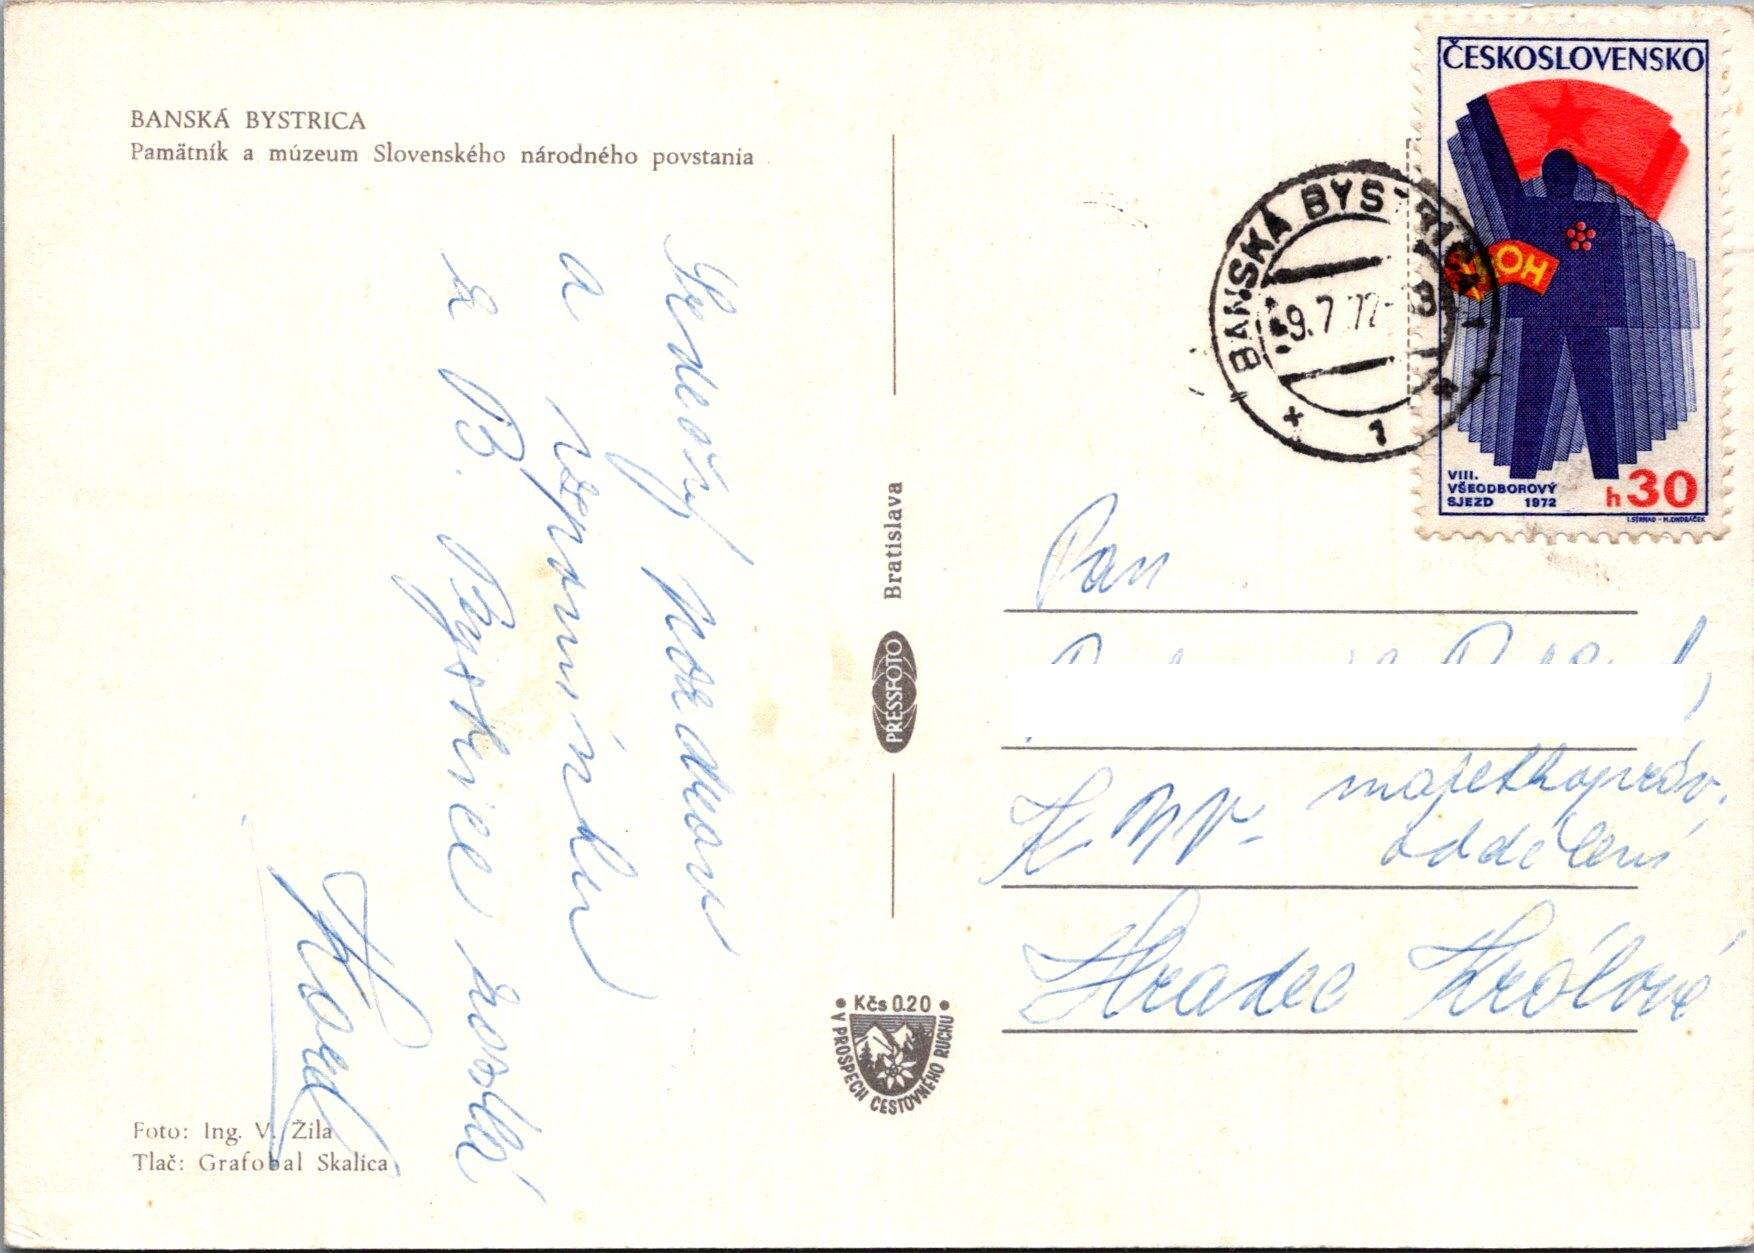 BANSKÁ BYSTRICA
Pamätník a múzeum Slovenského národného povstania
Srdečný pozdrav
a vzpomínku
z B. Bystrice zasílá
Foto: Ing. V. Žila
Tlač: Grafobal Skalica
Bratislava
PRESSFOTO
Kčs 0.20
V PROSPECH CESTOVNÉHO RUCHU
ČESKOSLOVENSKO
ROH
VIII.
VŠEODBOROVÝ
SJEZD 1972
h30
I. STRNAD - M. ONDRÁČEK
BANSKÁ BYSTRICA
9.7.72
1
Pan
KNV - majetkopráv.
oddělení
Hradec Králové